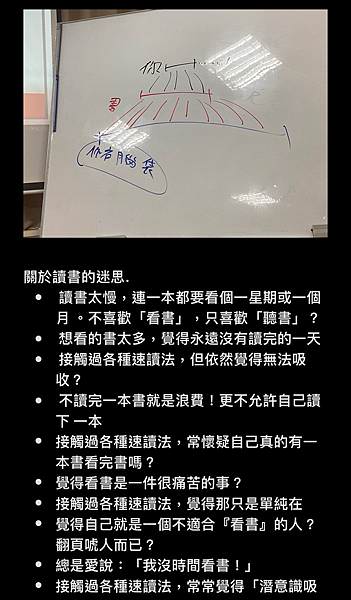 你
書
你的腦袋
關於讀書的迷思.
讀書太慢，連一本都要看個一星期或一個
月 。不喜歡「看書」，只喜歡「聽書」？
想看的書太多，覺得永遠沒有讀完的一天
接觸過各種速讀法，但依然覺得無法吸
收？
不讀完一本書就是浪費！更不允許自己讀
下 一本
接觸過各種速讀法，常懷疑自己真的有一
本書看完書嗎？
覺得看書是一件很痛苦的事？
接觸過各種速讀法，覺得那只是單純在
覺得自己就是一個不適合『看書』的人？
翻頁唬人而已？
總是愛說：「我沒時間看書！」
接觸過各種速讀法，常常覺得「潛意識吸